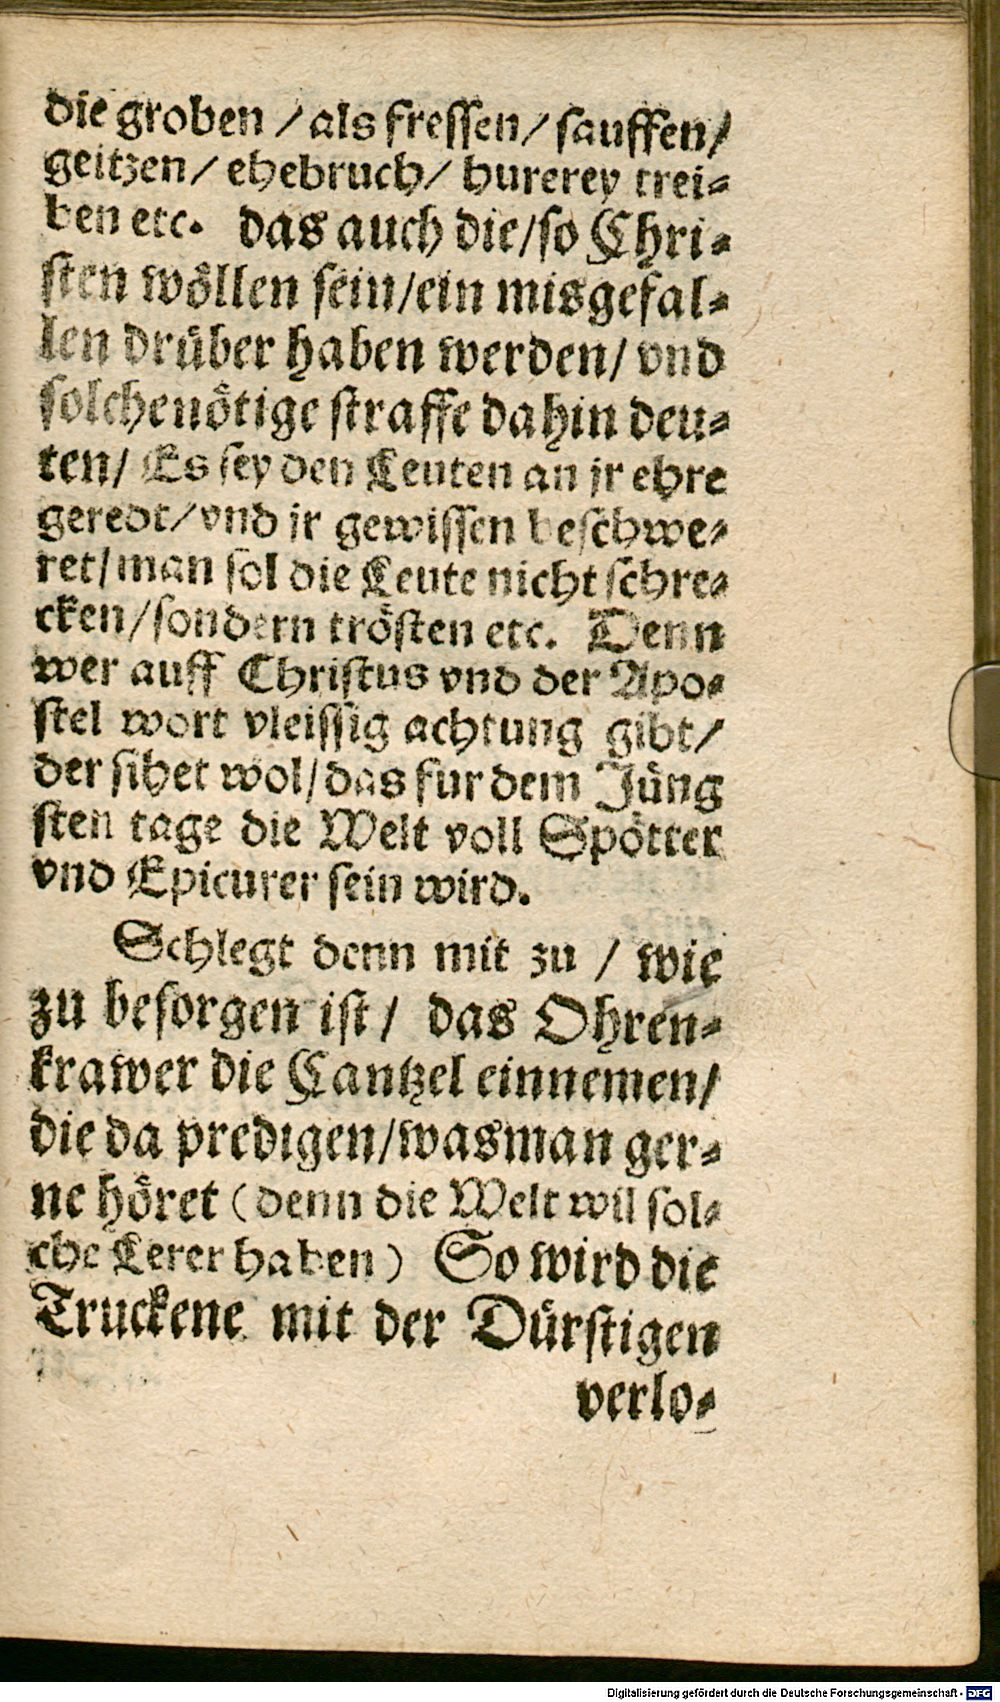 die groben / als fressen / sauffen /
geitzen / ehebruch / hurerey trei⸗
ben etc. das auch die / so Chri⸗
sten wöllen sein / ein misgefal⸗
len drüber haben werden / vnd
solche nötige straffe dahin deu⸗
ten / Es sey den Leuten an jr ehre
geredt / vnd jr gewissen beschwe⸗
ret / man sol die Leute nicht schre⸗
cken / sondern trösten etc. Denn
wer auff Christus vnd der Apo⸗
stel wort vleissig achtung gibt /
der sihet wol / das fur dem Jüng
sten tage die Welt voll Spötter
vnd Epicurer sein wird.
Schlegt denn mit zu / wie
zu besorgen ist / das Ohren⸗
krawer die Cantzel einnemen /
die da predigen / was man ger⸗
ne höret (denn die Welt wil sol⸗
che Lerer haben) So wird die
Truckene mit der Dürstigen
verlo⸗
Digitalisierung gefördert durch die Deutsche Forschungsgemeinschaft - DFG